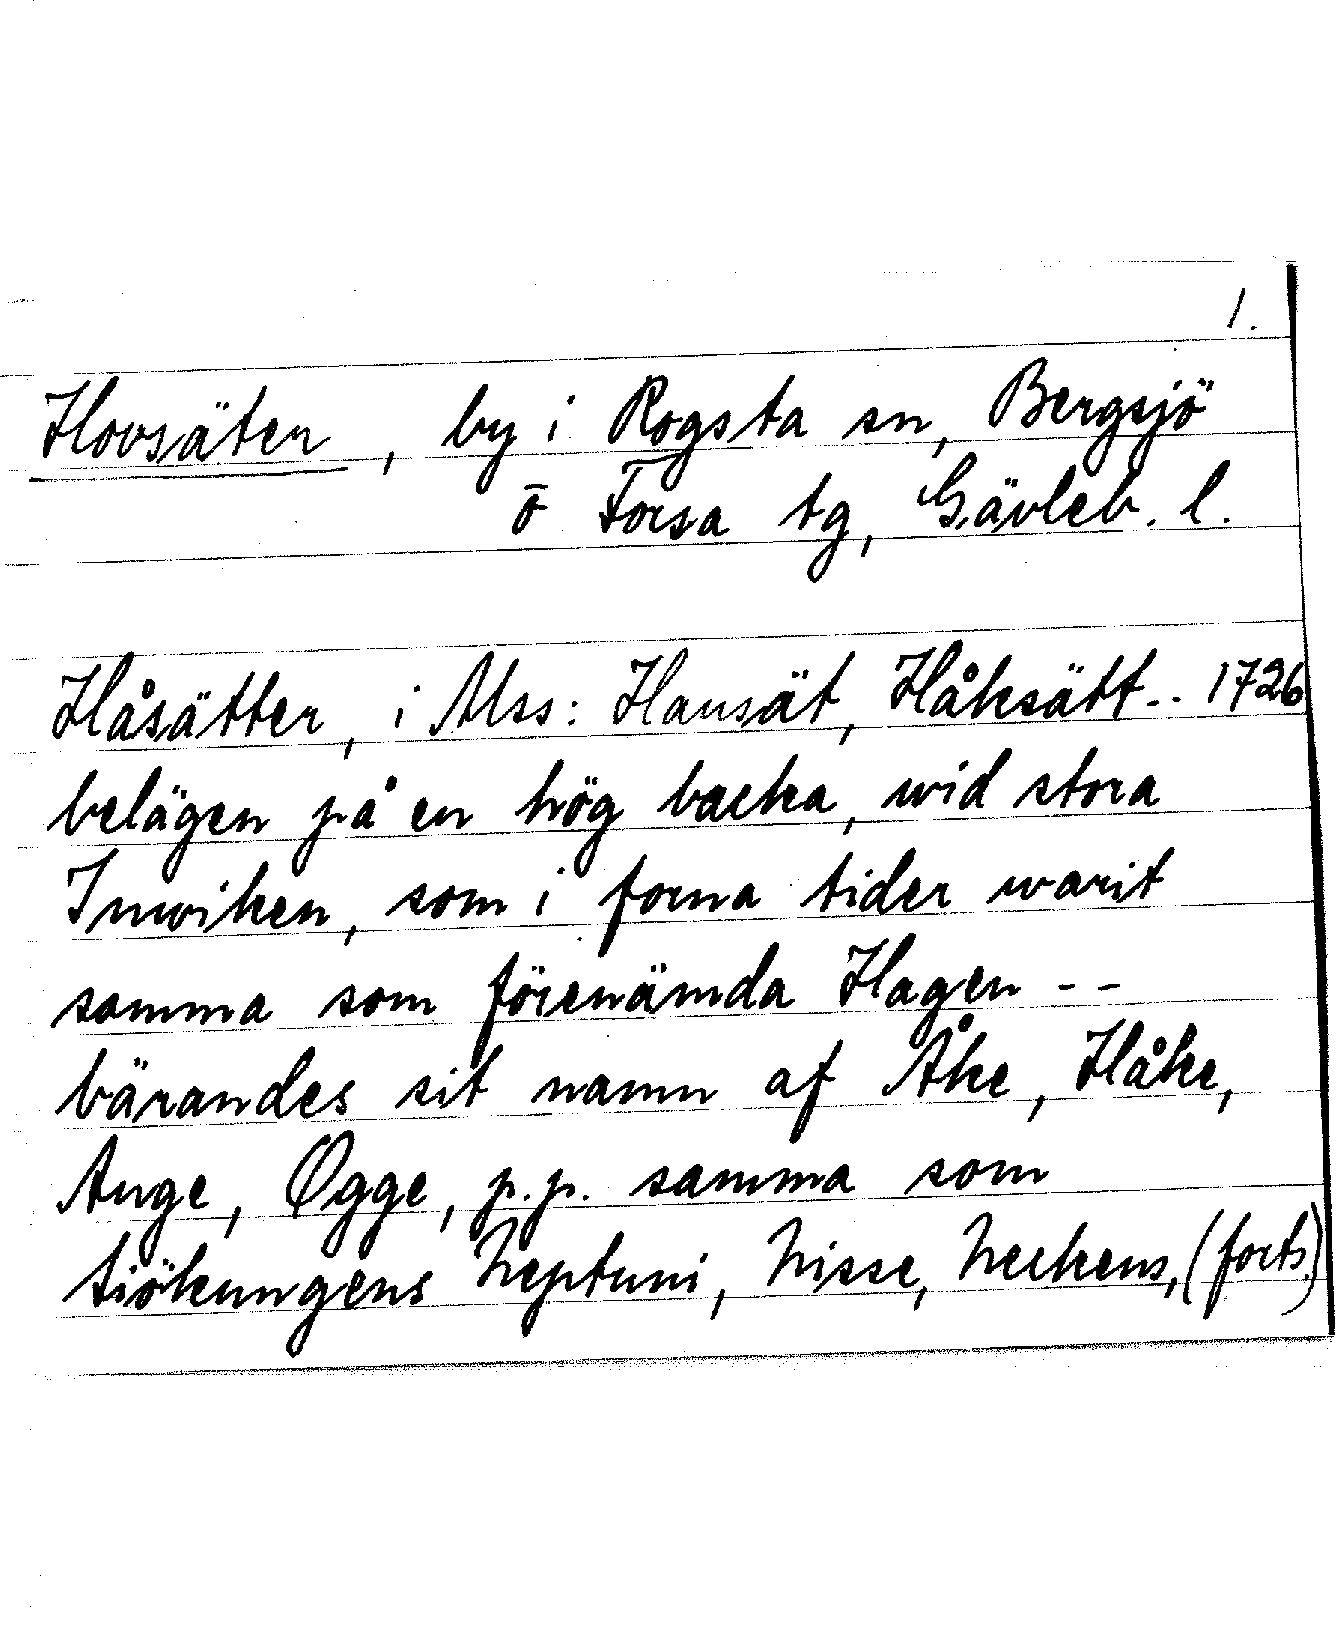 1.
Hovsäter, by i Rogsta sn, Bergsjö
o Forsa tg, Gävleb. l.
Håsätter, i Mss: Hansät, Håksätt.. 1726
belägen på en hög backa, wid stora
Inwiken, som i forna tider warit
samma som förenämda Hagen - -
bärandes sit namn af Åke, Håke,
Auge, Ogge, p.p. samma som
siökungens Neptuni, Nisse, Neckens, (forts.)